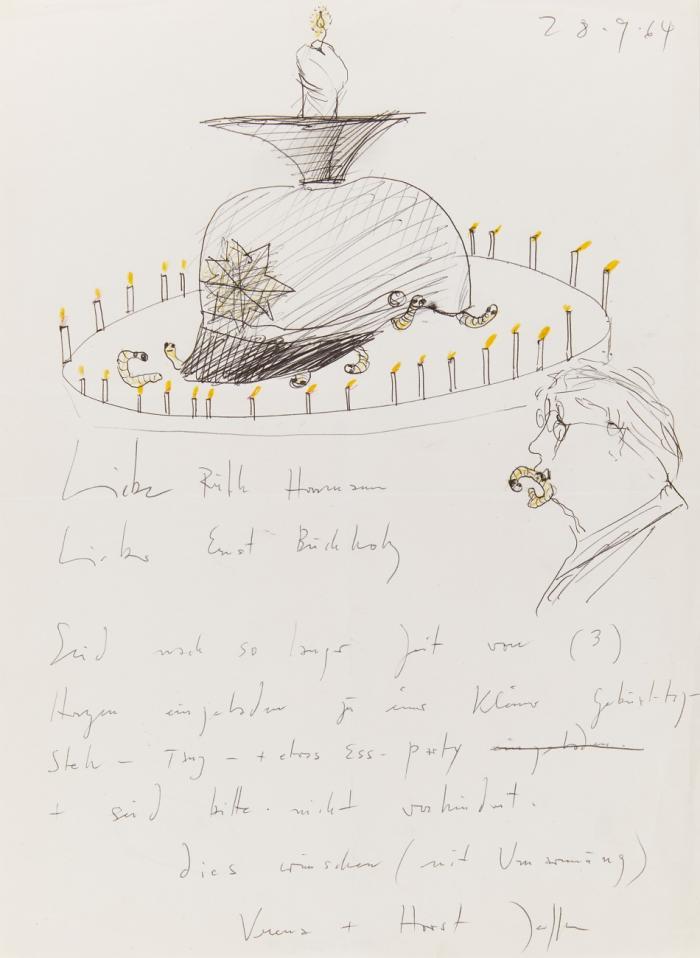 28.9.64
Liebe Ruth
Liebe Ernst Buchholz
Seid nach so langer Zeit von (3)
Herzen eingeladen zu einer kleinen Geburtstag-
Steh - Tanz - + etwas Ess - party eingeladen.
+ seid bitte nicht verhindert.
dies wünschen (mit Umarmung)
Verena + Horst Janssen